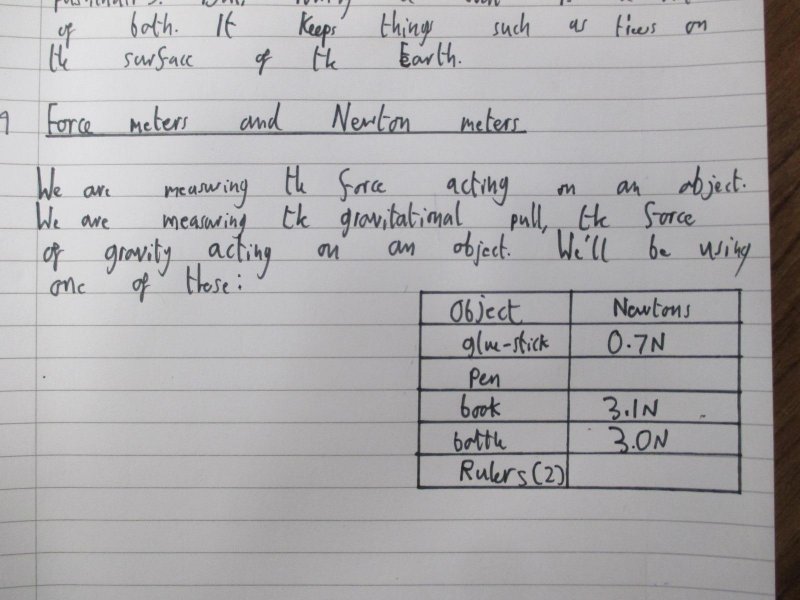 of both. It keeps things such as tives on
the surface of the Earth.
Force meters and Newton meters
We are measuring the force acting on an object.
We are measuring the gravitational pull, the force
of gravity acting on an object. We'll be using
one of these:
Object Newtons
glue-stick 0.7N
Pen
book 3.1N
bottle 3.0N
Rulers (2)